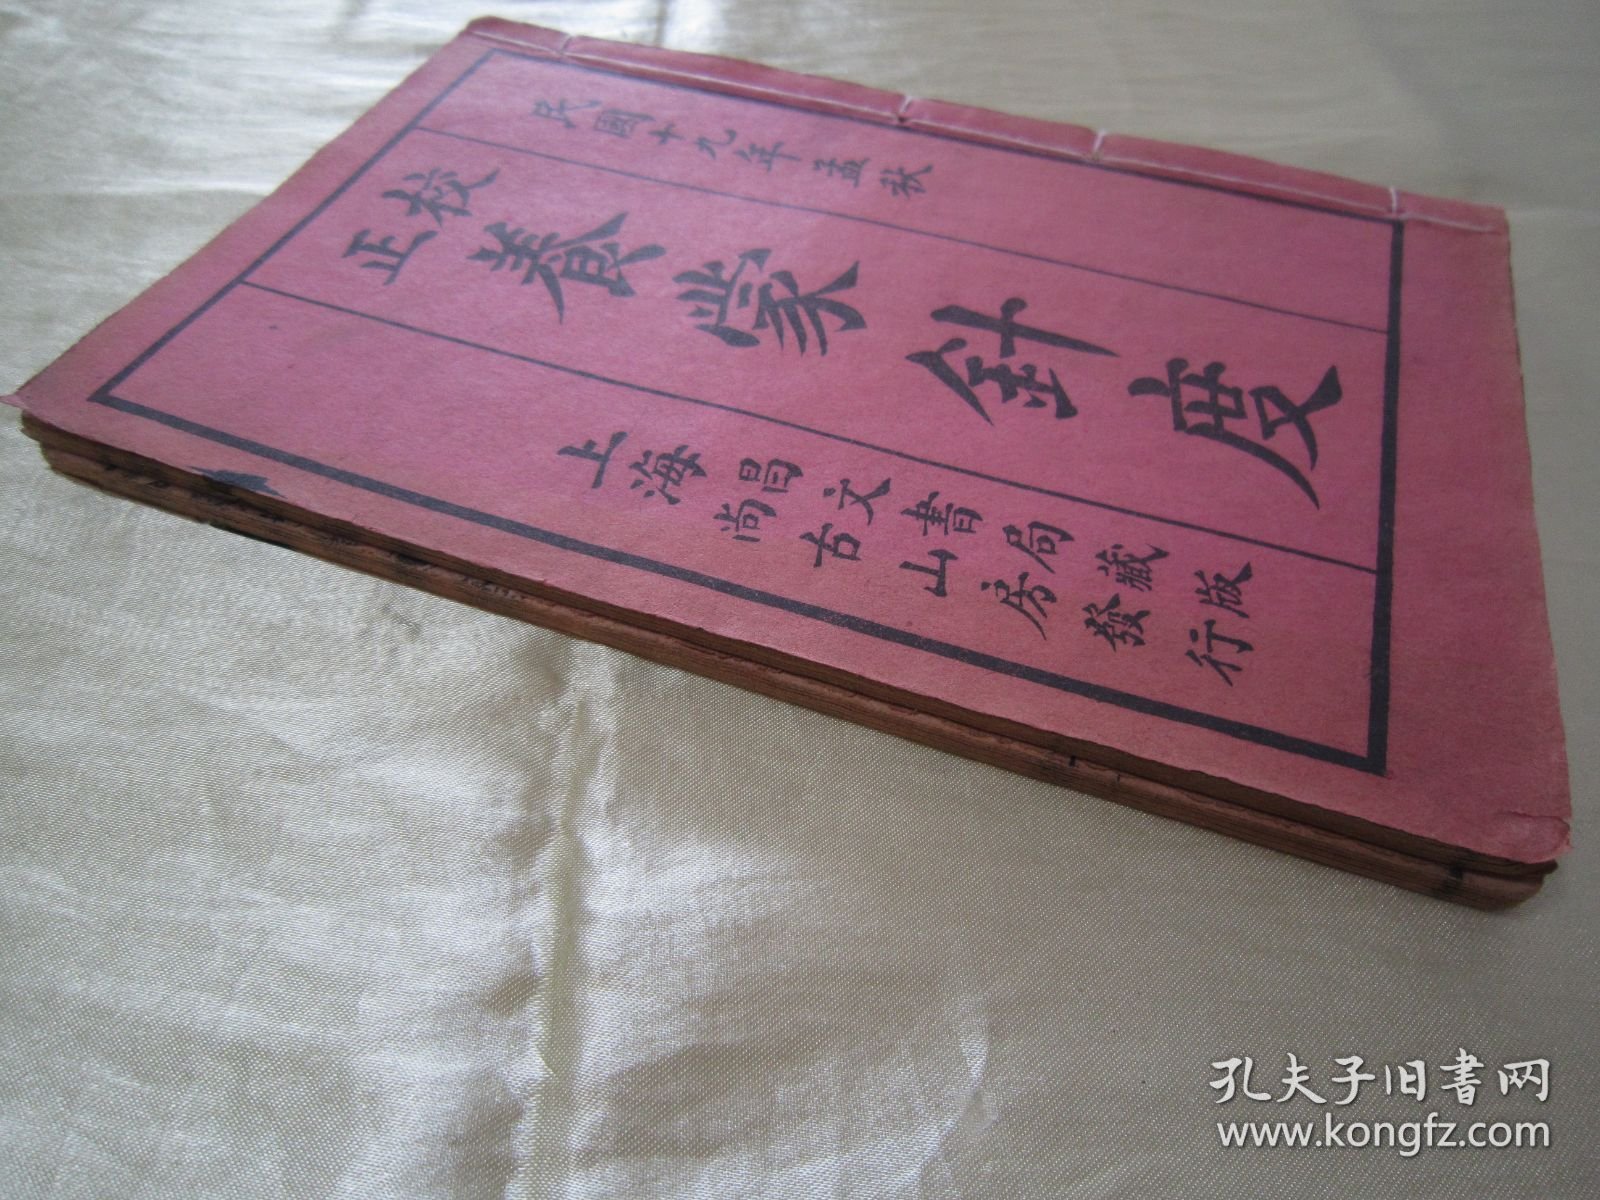 民國十九年孟秋
校正養蒙針度
上海昌文書局藏版
尚古山房發行
孔夫子旧書网
www.kongfz.com